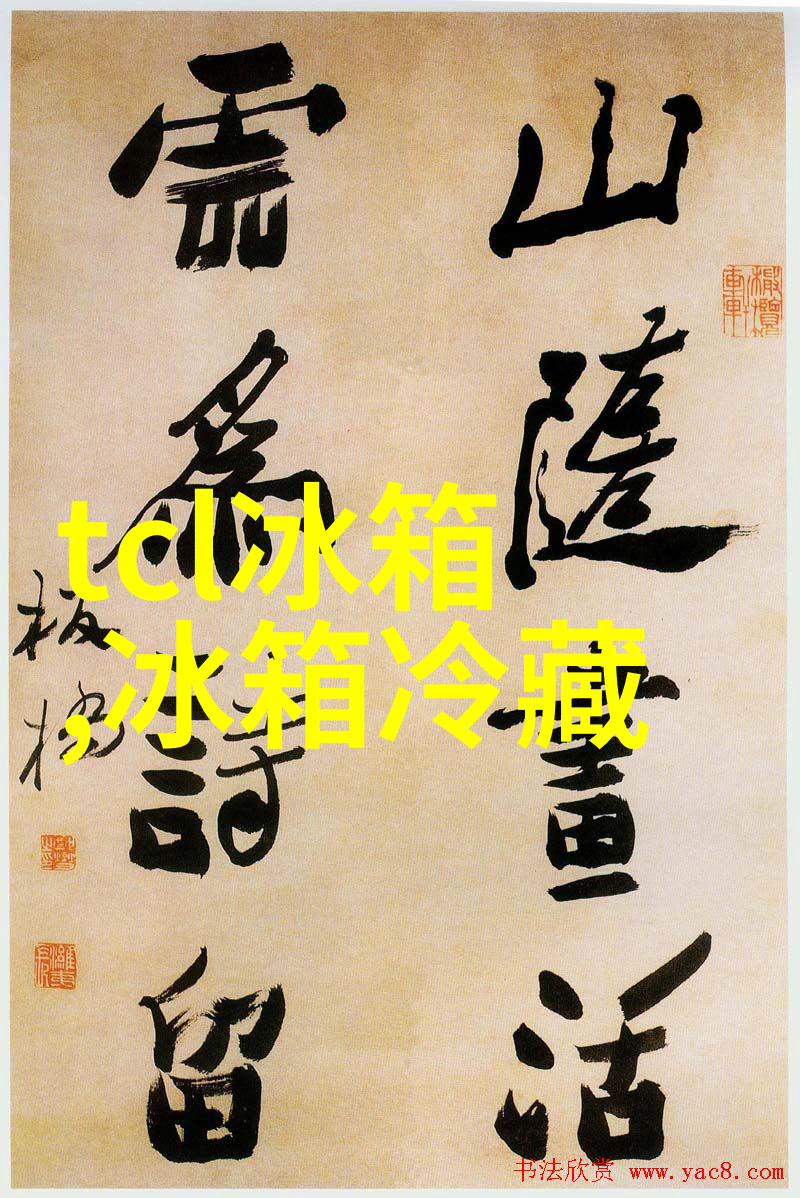 山隨畫活
雲爲詩留
板橋
tcl冰箱
,冰箱冷藏
书法欣赏 www.yac8.com